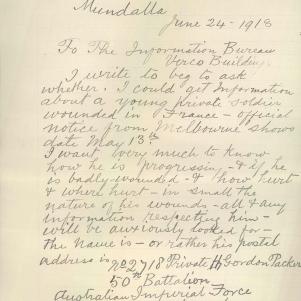 Mundalla
June 24 - 1918
To The Information Bureau
Verco Building
I write to beg to ask
whether I could get Information
about a young private soldier
wounded in France - official
notice from Melbourne shows
date May 13th
I want very much to know
how he is progressing - & if he
is badly wounded - & how hurt
& where hurt - in small the
nature of his wounds - all & any
information respecting him -
will be anxiously looked for -
the name is - or rather his postal
address is
No 2718 Private H Gordon Packer
50th Battalion
Australian Imperial Force